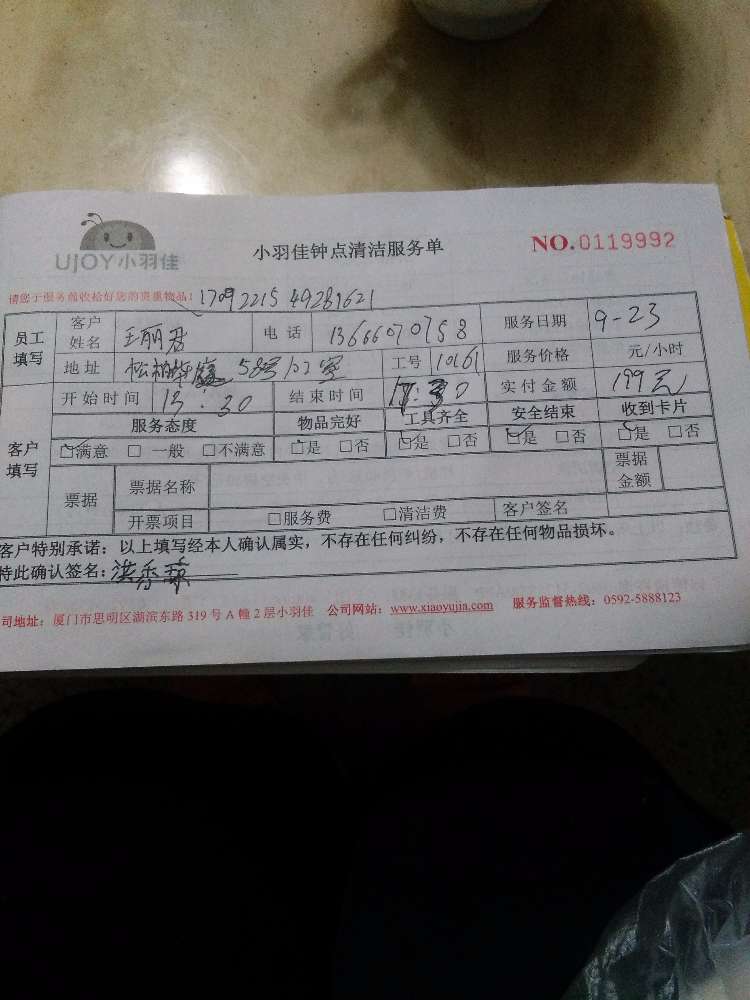 UJOY小羽佳
小羽佳钟点清洁服务单
NO.0119992
请您于服务前收拾好您的贵重物品！1709221549281621
员工填写 客户姓名 王丽君 电话 13666070758 服务日期 9-23
地址 松柏 58号 工号 10161 服务价格 元/小时
开始时间 13:30 结束时间 17:30 实付金额 199元
客户填写 服务态度 物品完好 工具齐全 安全结束 收到卡片
☑满意 □一般 □不满意 ☑是 □否 ☑是 □否 ☑是 □否 ☑是 □否
票据 票据名称 票据金额
开票项目 □服务费 □清洁费 客户签名
客户特别承诺：以上填写经本人确认属实，不存在任何纠纷，不存在任何物品损坏。
特此确认签名：洪香
司地址：厦门市思明区湖滨东路319号A幢2层小羽佳 公司网站：www.xiaoyujia.com 服务监督热线：0592-5888123